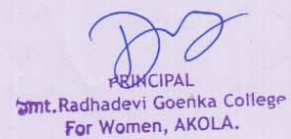 PRINCIPAL
Smt.Radhadevi Goenka College
For Women, AKOLA.